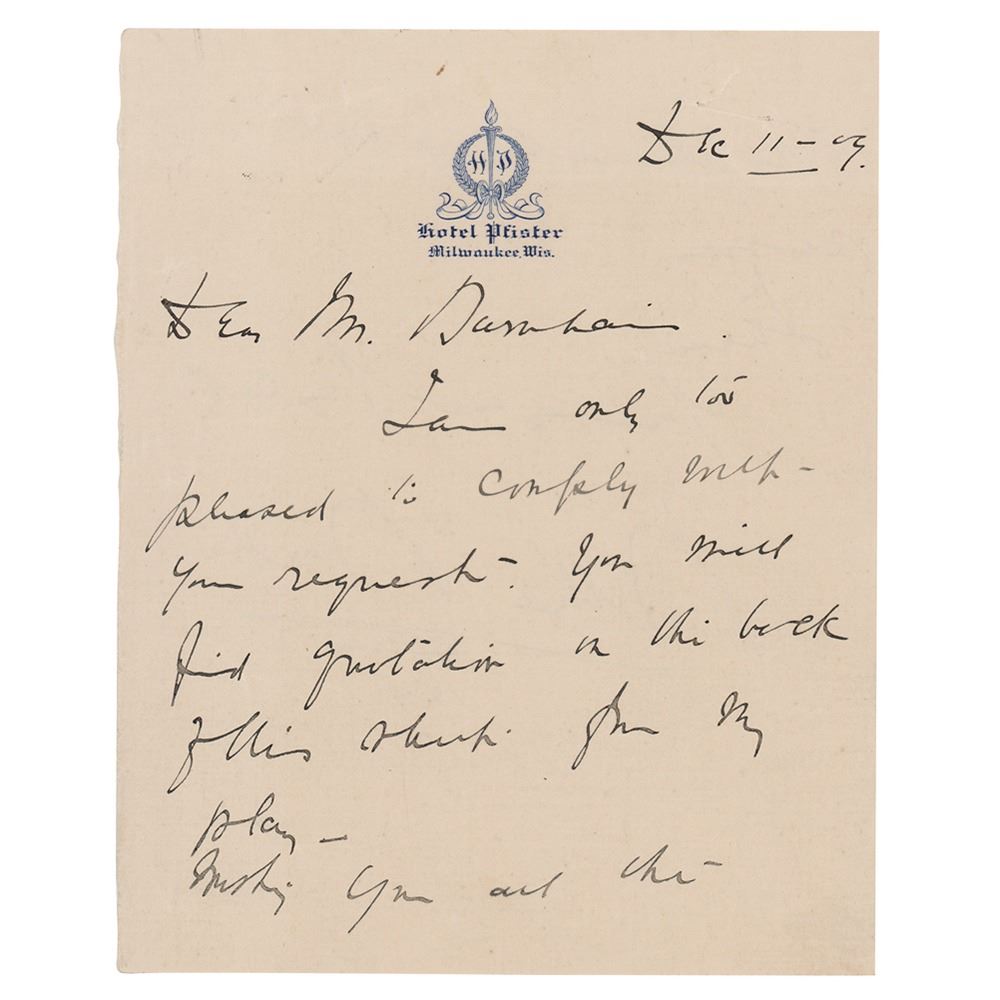 Dec 11 - 09.
H P
Hotel Pfister
Milwaukee, Wis.
Dear Mr. Barnham.
I am only too
pleased to comply with
your request. You will
find quotation on the back
of this sheet. from my
play -
Wishing you all the